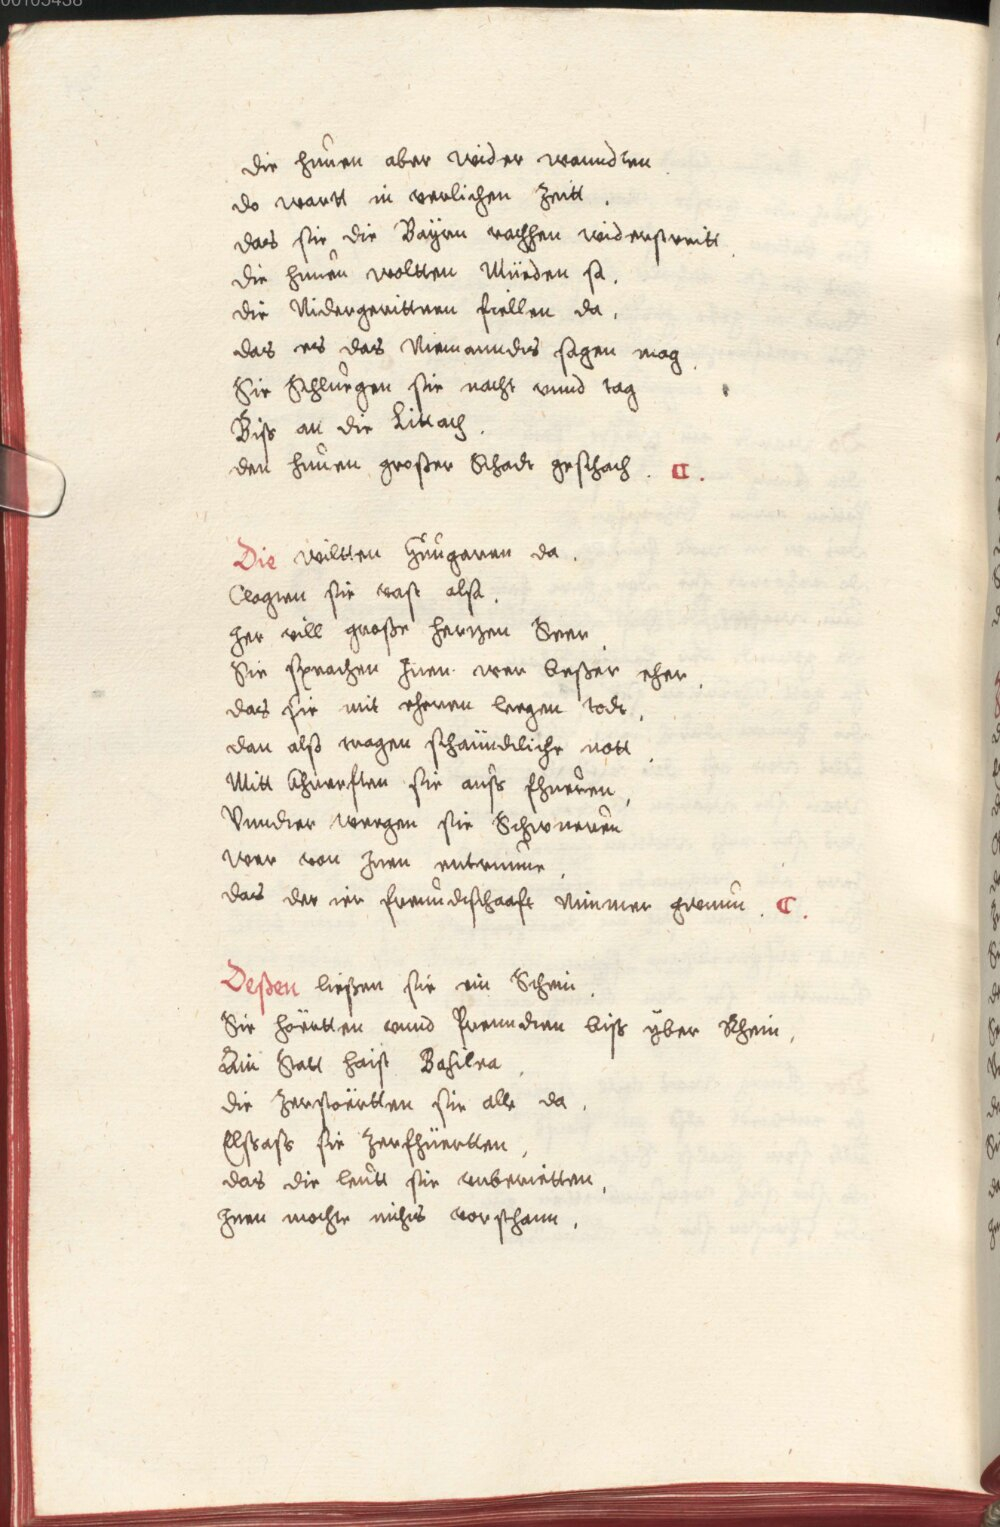 die hunen aber wider wanndten
do wartt in verlichen Zeitt.
das sie die Bayrn rachhen widerstreitt.
die hunen woltten Müeden sa.
die Nidergerittnen fiellen da,
das es das Niemanndts sagen mag.
Sie Schluegen sie nacht vnnd tag
Biss an die Littach.
den hunen großer Schade geschach. C.
Die wiltten Hungaren da.
Clagten sie vast also.
her vill große hertzen Seer.
Sie sprachen Inen wer beßer eher,
das sie mit eheren legen todt,
dan alß tragen schanndtliche nott.
Mitt Khrefften sie auss fhueren,
Vnnder wegen sie Schwueren
wer von Inen entrunne,
das der ier freundtschaafft Nimmer gwunn. C.
Deßen ließen sie ein Schein.
Sie hörtten vnnd Prenndten biss yber Rhein,
Ain Statt haist Basilea,
die Zerstörtten sie alle da,
Elssass sie Zerfhüertten,
das die leutt sie vnberietten,
Inen mochte nichts vorsthann,